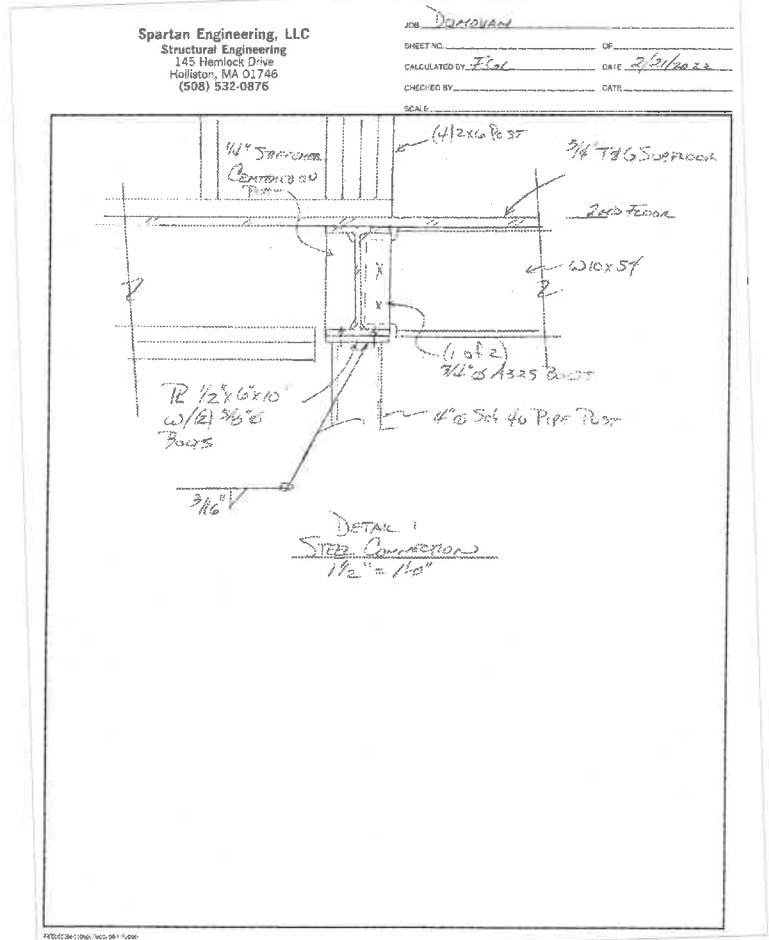 Spartan Engineering, LLC
Structural Engineering
145 Hemlock Drive
Holliston, MA 01746
(508) 532-0876
JOB DONOVAN
SHEET NO. OF
CALCULATED BY DATE 2/21/2022
CHECKED BY DATE
SCALE
(4) 2x6 POST
1/4" STIFFENER
CENTERED ON
POST
3/4" T&G SUBFLOOR
2ND FLOOR
W10x54
(1 of 2)
3/4"Ø A325 BOLT
PL 1/2"x6"x10"
W/(2) 5/8"Ø
BOLTS
4"Ø Sch 40 PIPE POST
3/16"
DETAIL 1
STEEL CONNECTION
1 1/2" = 1'-0"